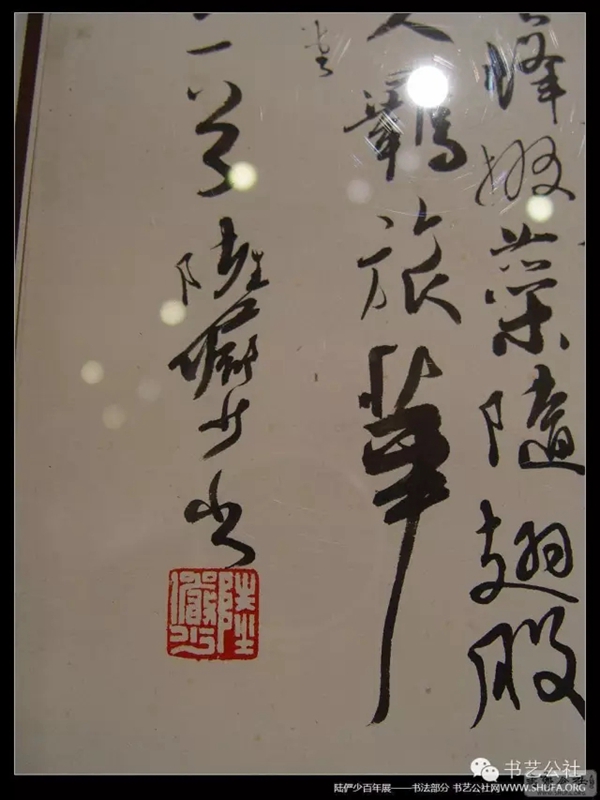 蜂掇蘂隨翅股
羈旅華
一首 陸儼少書
陸儼少
书艺公社
陆俨少百年展——书法部分 书艺公社网WWW.SHUFA.ORG